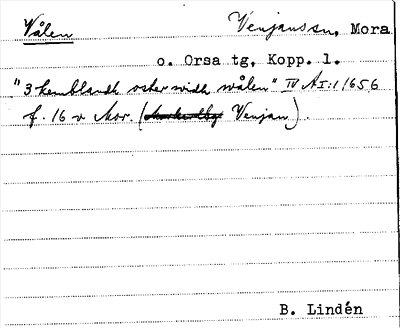 Wålen Venjans sn, Mora
o. Orsa tg, Kopp. l.
"3 hemblandh oster widh wålen" IV AI:1 1656
f. 16 v Mor. ( Venjan).
B. Lindén